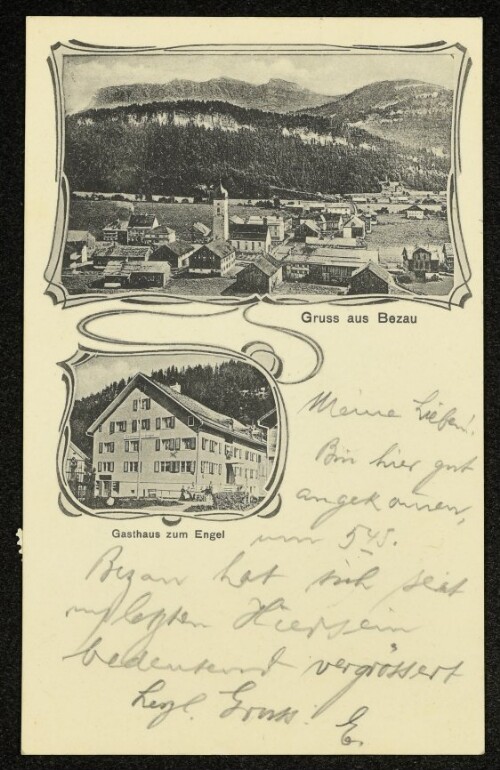 Gruss aus Bezau
Gasthaus zum Engel
Meine Lieben!
Bin hier gut
angekommen,
um 5 45.
Bezau hat sich seit
m letzten Hiersein
bedeutend vergrössert
herzl. Gruss! E.